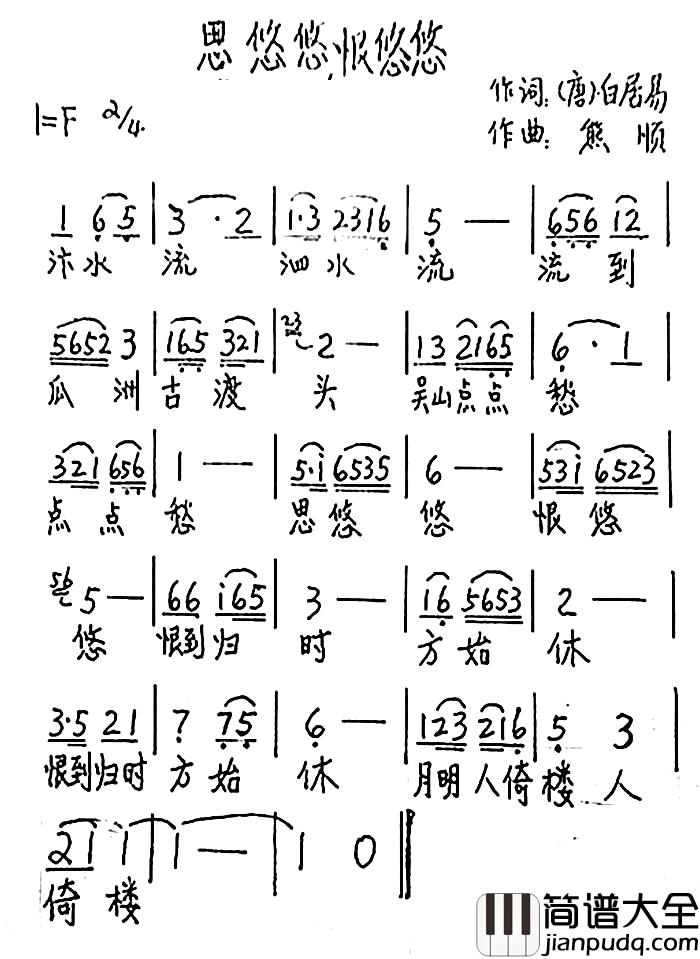 思悠悠,恨悠悠
作词:(唐)·白居易
1=F 2/4.
作曲: 熊顺
1 6 5 | 3 · 2 | 1·3 2316 | 5 — | 656 12 |
汴水 流 泗水 流 流 到
5652 3 | 165 321 | 23 2 — | 13 2165 | 6 · 1 |
瓜 洲 古 渡 头 吴山点点 愁
321 656 | 1 — | 5·i 6535 | 6 — | 53i 6523 |
点 点 愁 思悠 悠 恨 悠
56 5 — | 66 i65 | 3 — | 16 5653 | 2 — |
悠 恨到归 时 方始 休
3·5 21 | 7 75 | 6 — | 123 216 | 5 3 |
恨到归时 方始 休 月明人倚楼人
21 1 | 1 — | 1 0 ||
倚 楼
简谱大全
jianpudq.com